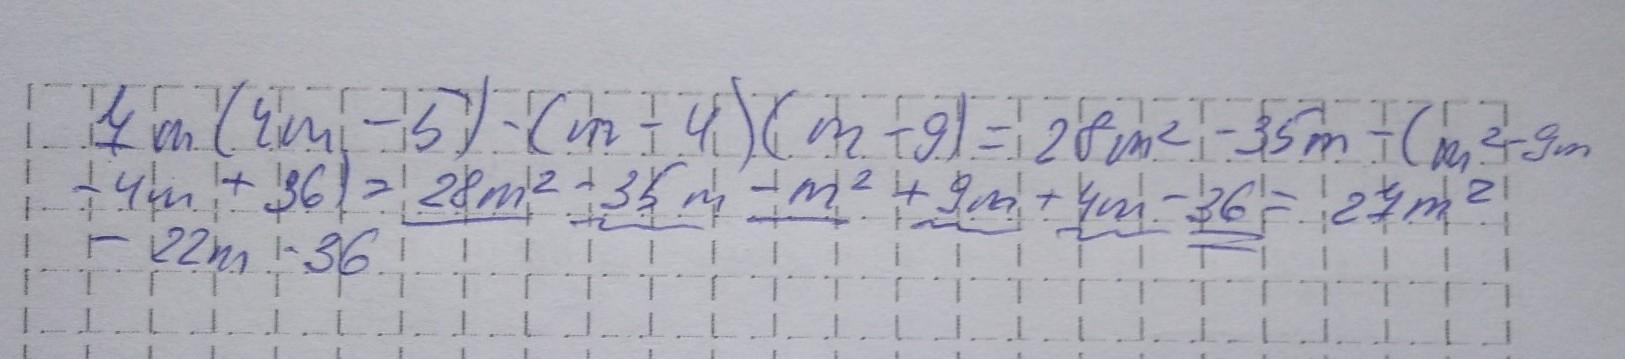 7m(4m-5)-(m-4)(m-9)=28m²-35m-(m²-9m
-4m+36)=28m²-35m-m²+9m+4m-36=27m²
-22m-36